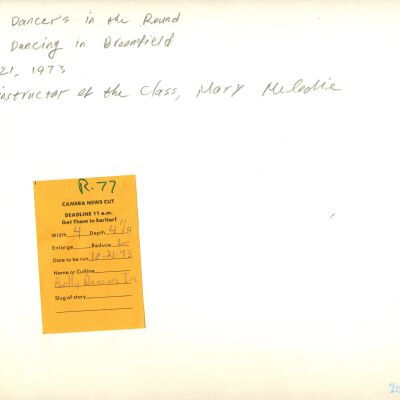 Dancers in the Round
Dancing in Broomfield
21, 1973
instructor of the Class, Mary Melodie
R.77
CAMERA NEWS CUT
DEADLINE 11 a.m.
Get Them In Earlier!
Width 4 Depth 4 1/4
Enlarge Reduce
Date to be run 10-21-73
Name or Cutline
Belly Dancers In
Slug of story
20